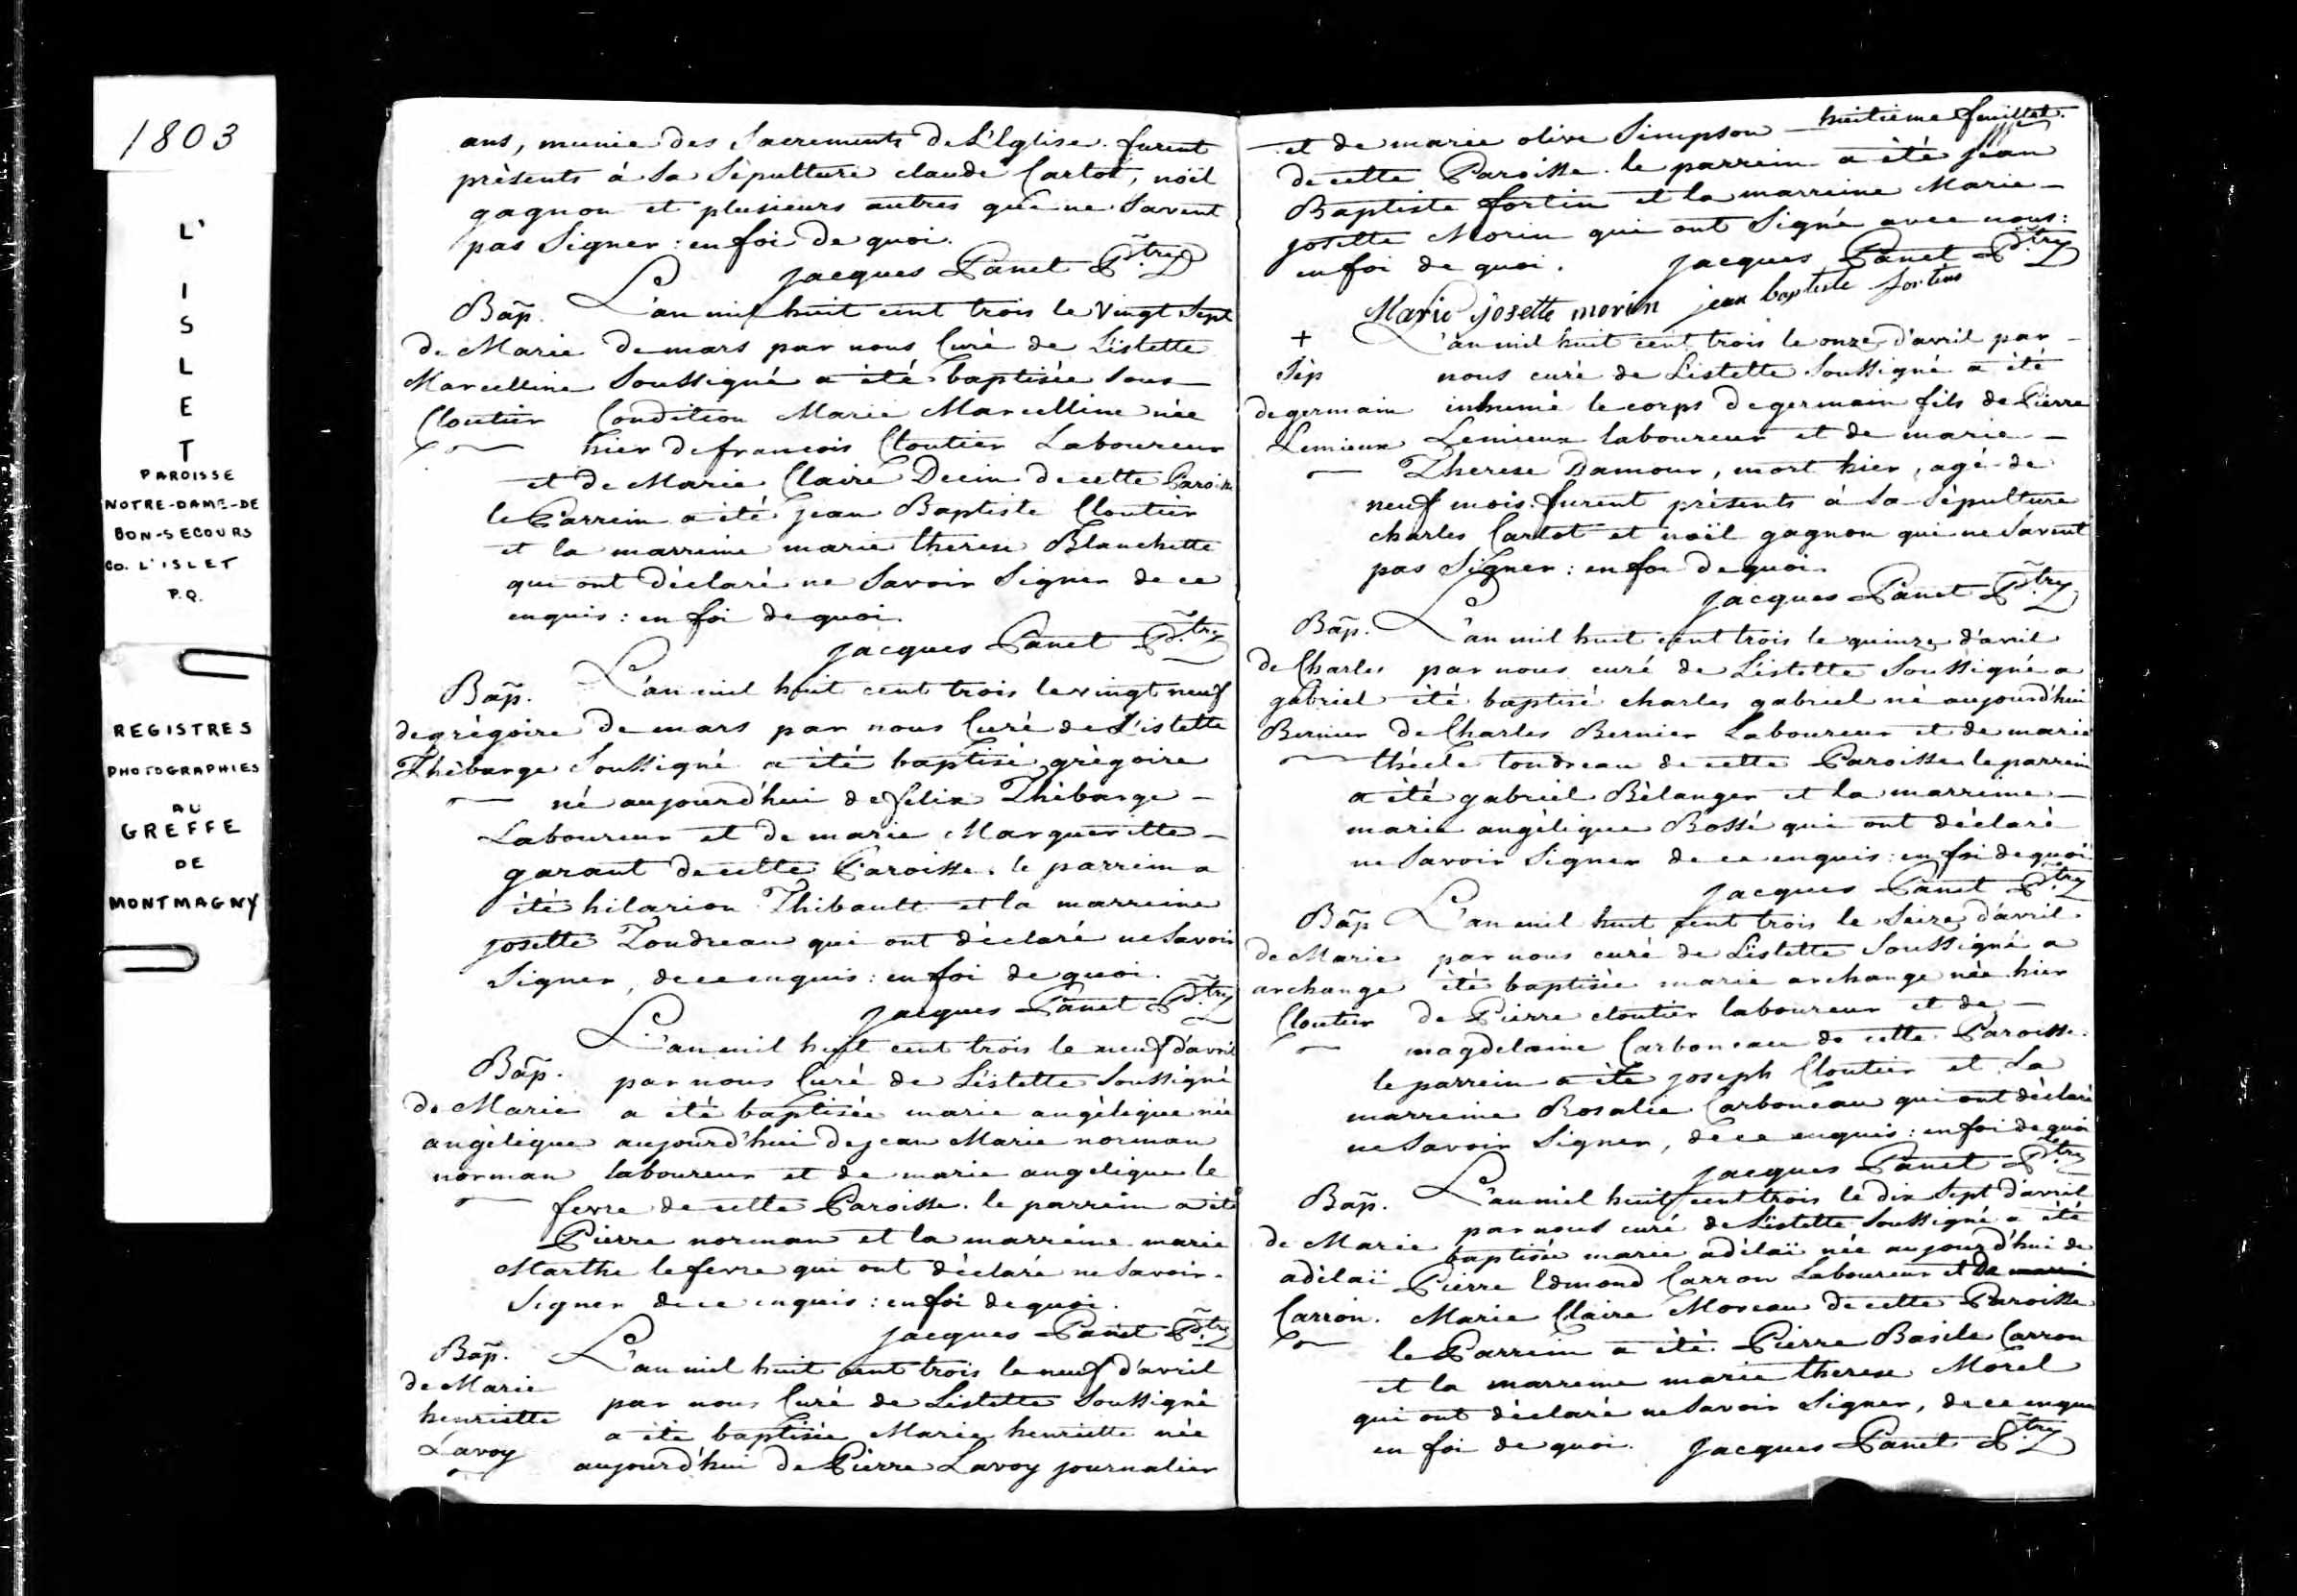 1803
L'
I
S
L
E
T
PAROISSE
NOTRE-DAME-DE
BON-SECOURS
CO. L'ISLET
P.Q.
REGISTRES
PHOTOGRAPHIES
AU
GREFFE
DE
MONTMAGNY
ans, munie des Sacrements de L'Eglise. furent
présents à Sa Sépulture claude Cartot, noël
gagnon et plusieurs autres qui ne Savent
pas Signer : en foi de quoi.
Jacques Panet Ptre
Bap. L'an mil huit cent trois le Vingt Sept
de Marie de mars par nous Curé de L'islette
Marcelline Soussigné a été baptisée Sous
Cloutier Condition Marie Marcelline née
hier de francois Cloutier Laboureur
et de Marie Claire Decin de cette Paroisse
le Parrein a été jean Baptiste Cloutier
et la marreine marie therese Blanchette
qui ont déclaré ne Savoir Signer de ce
enquis : en foi de quoi.
Jacques Panet Ptre
Bap. L'an mil huit cent trois le vingt neuf
de grégoire de mars par nous Curé de L'islette
Thèbarge Soussigné a été baptisé grégoire
né aujourd'hui de felix Thèbarge
Laboureur et de marie Margueritte
garant de cette Paroisse. le parrein a
été hilarion Thibault et la marreine
josette Toudreau qui ont déclaré ne Savoir
Signer, de ce enquis : en foi de quoi.
Jacques Panet Ptre
L'an mil huit cent trois le neuf d'avril
Bap. par nous Curé de L'islette Soussigné
de Marie a été baptisée marie angélique née
angélique aujourd'hui de jean Marie norman
norman laboureur et de marie angelique le
fevre de cette Paroisse. le parrein a été
Pierre norman et la marreine marie
Marthe lefevre qui ont déclaré ne Savoir
Signer de ce enquis : en foi de quoi.
Jacques Panet Ptre
Bap. L'an mil huit cent trois le neuf d'avril
de Marie par nous Curé de L'islette Soussigné
henriette a été baptisée Marie henriette née
Lavoy aujourd'hui de Pierre Lavoy journalier
huitieme feuillet.
et de marie olive Simpson
de cette Paroisse. le parrein a été jean
Baptiste fortin et la marreine Marie
josette Morin qui ont Signé avec nous :
en foi de quoi. Jacques Panet Ptre
Marie josette morin jean baptiste fortin
+ L'an mil huit cent trois le onze d'avril par
Sép nous curé de L'islette Soussigné a été
de germain inhumé le corps de germain fils de Pierre
Lemieux Lemieux laboureur et de marie
Therese Damour, mort hier, agé de
neuf mois. furent présents à Sa Sépulture
charles Cartot et noël gagnon qui ne Savent
pas Signer : en foi de quoi.
Jacques Panet Ptre
Bap. L'an mil huit cent trois le quinze d'avril
de Charles par nous curé de L'islette Soussigné a
gabriel été baptisé charles gabriel né aujourd'hui
Bernier de Charles Bernier Laboureur et de marie
thécle toudreau de cette Paroisse le parrein
a été gabriel Bèlanger et la marreine
marie angèlique Bossé qui ont déclaré
ne Savoir Signer de ce enquis : en foi de quoi
Jacques Panet Ptre
Bap L'an mil huit cent trois le Seize d'avril
de Marie par nous curé de L'islette Soussigné a
archange été baptisée marie archange née hier
Cloutier de Pierre cloutier laboureur et de
magdelaine Carboneau de cette Paroisse.
le parrein a été joseph Cloutier et La
marreine Rosalie Carboneau qui ont déclaré
ne Savoir Signer, de ce enquis : en foi de quoi
Jacques Panet Ptre
Bap. L'an mil huit cent trois le dix Sept d'avril
par nous curé de L'islette Soussigné a été
de Marie baptisée marie adèlaï née aujourd'hui de
adèlaï Pierre Edmond Carron Laboureur et de
Carron. Marie Claire Moreau de cette Paroisse
le Parrein a été Pierre Basile Carron
et la marreine marie therese Morel
qui ont déclaré ne Savoir Signer, de ce enquis
en foi de quoi. Jacques Panet Ptre